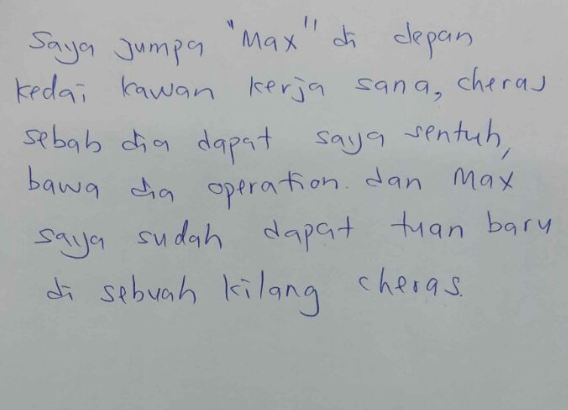 Saya jumpa "Max" di depan
kedai kawan kerja sana, cheras
sebab dia dapat saya sentuh,
bawa dia operation. dan Max
saya sudah dapat tuan baru
di sebuah kilang cheras.